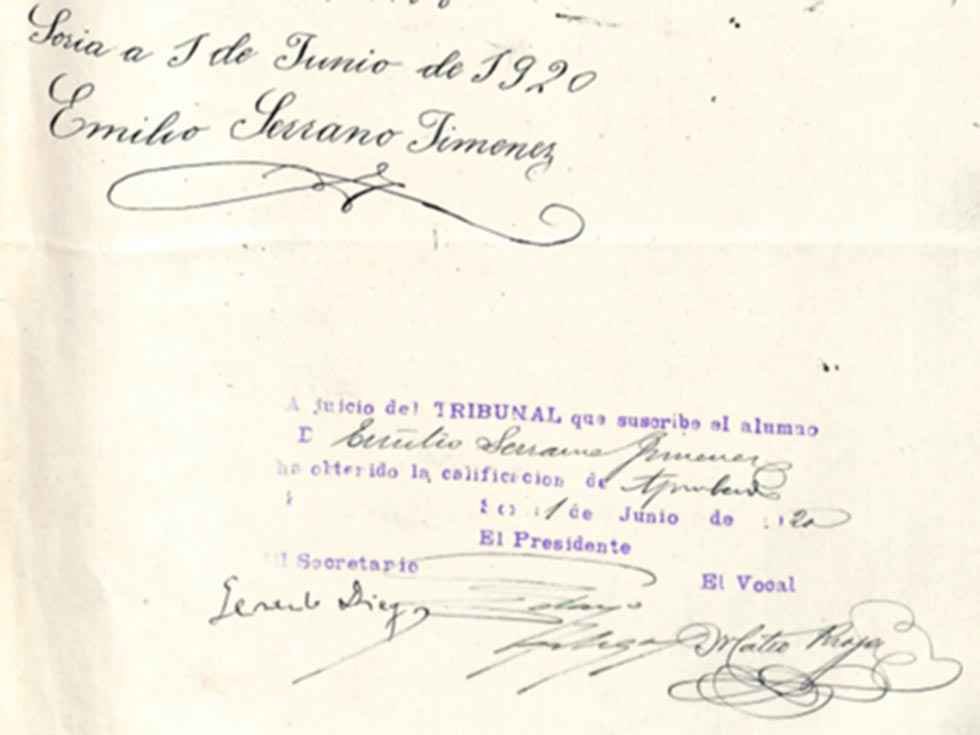 Soria a 1 de Junio de 1920
Emilio Serrano Jimenez
A juicio del TRIBUNAL que suscribe el alumno
D Emilio Serrano Jimenez
ha obtenido la calificacion de Aprobado
1 de Junio de 20
El Presidente
El Secretario
El Vocal
Gerardo Diego
Mateo